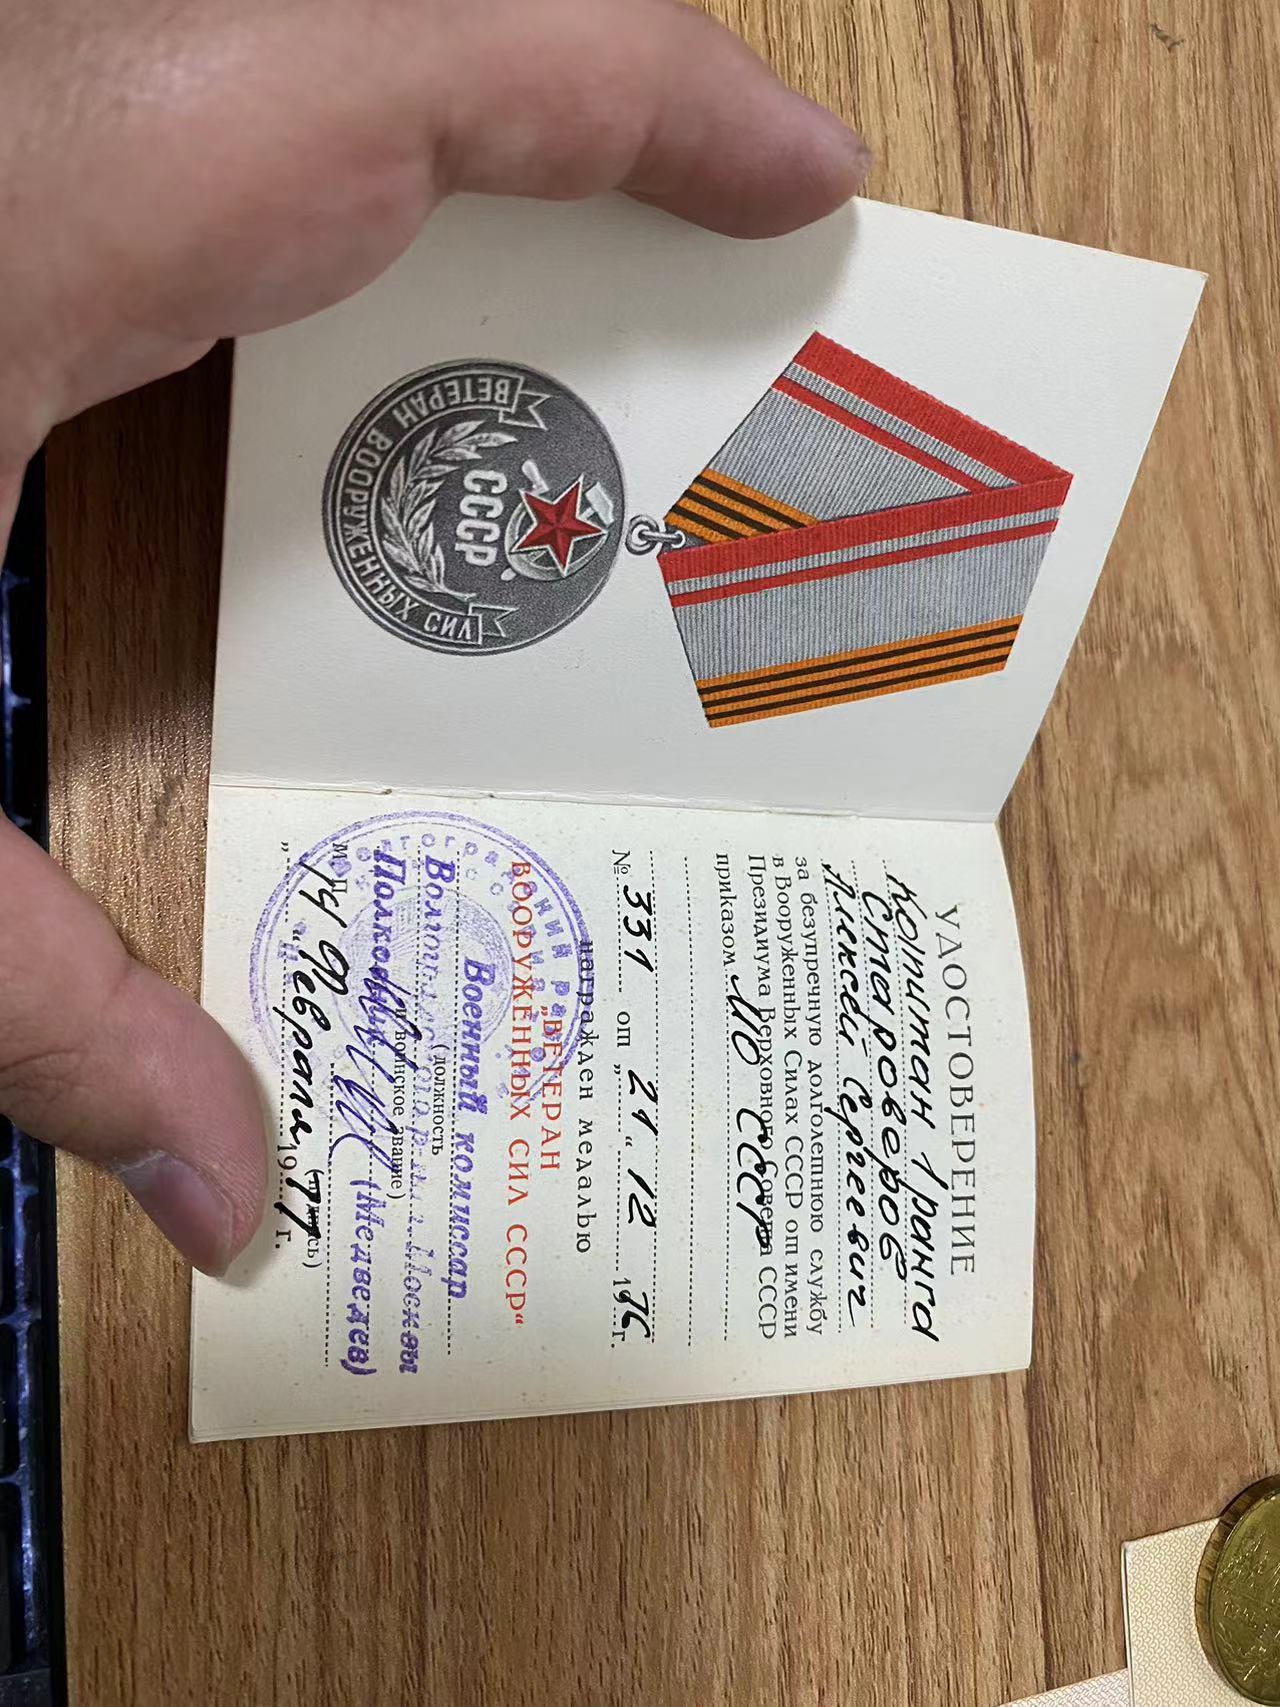 ВЕТЕРАН ВООРУЖЕННЫХ СИЛ
СССР
УДОСТОВЕРЕНИЕ
Капитан 1 ранга
Староверов
Алексей Сергеевич
за безупречную долголетнюю службу
в Вооруженных Силах СССР от имени
Президиума Верховного Совета СССР
приказом МО СССР
№ 331 от „21“ 12 1976 г.
награжден медалью
„ВЕТЕРАН
ВООРУЖЕННЫХ СИЛ СССР“
Военный комиссар
(должность
Волгоградского р-на г. Москвы
и воинское звание)
Полковник (Медведев)
М. П. (подпись)
„14“ февраля 1977 г.